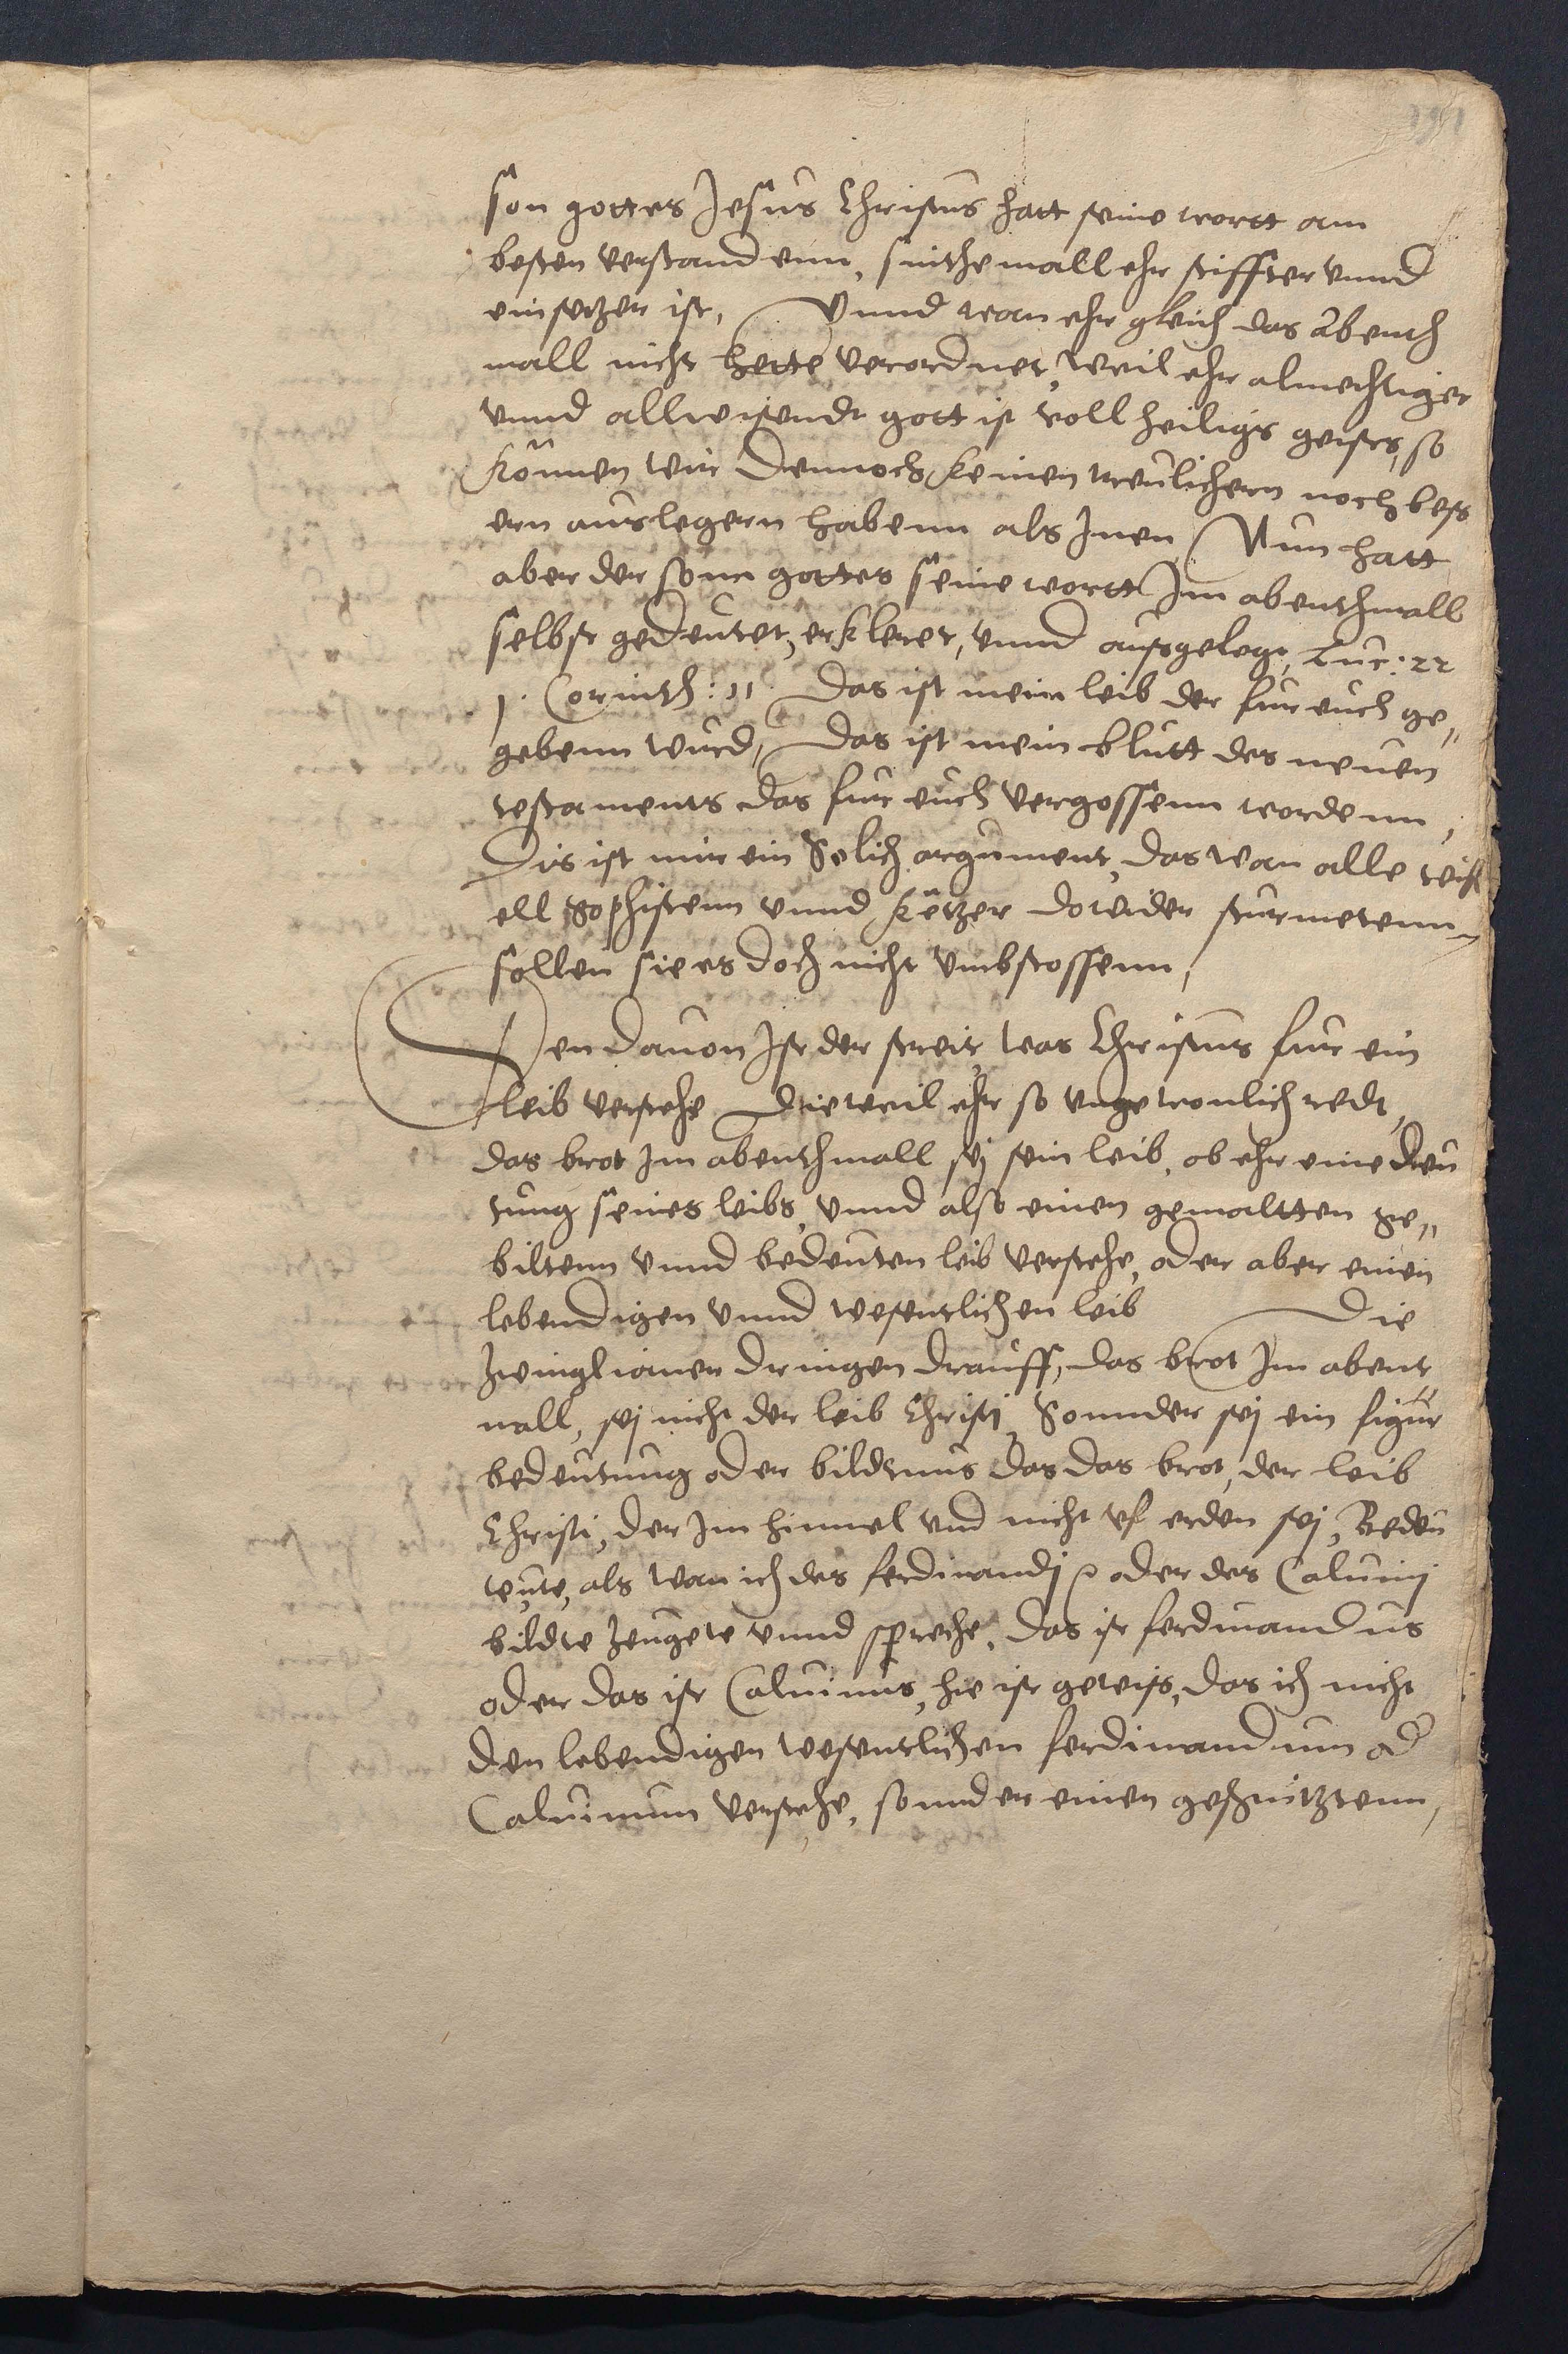 son gottes Jesus Christus hatt seine wortt am
besten verstandenn, sinthemall ehr stiffter vnnd
einsetzer ist, Vnnd wan ehr gleich das Abenth
mall nicht hette verordnet, weil ehr almechtiger
vnnd allwisendt gott ist voll heiligs geistes, so
können wir dennoch keinen treulichern noch bess
ern auslegern habenn als Jnen, Nun hatt
aber der sonn gottes seine wortt Jm abenthmall
selbst gedeutet, erkleret, vnnd ausgelegt, Luc: 22
1. Corinth: 11. Das ist mein leib der fur euch ge„
gebenn wurd, Das ist mein blutt des neuen
testaments das fur euch vergossenn wordenn,
Dis ist mir ein Solich argument, das wan alle
ell Sophistenn vnnd Ketzer dowider sturmetenn
sollen sie es doch nicht vmbstossenn,
Den dauon Jst der streit, was Christus fur ein
leib verstehe Dieweil ehr so vngewonlich redt,
das brot Jm abenthmall sej sein leib, ob ehr eine deu
tung seines leibs, vnnd also einen gemaltten ge„
biltenn vnnd bedeuten leib verstehe, oder aber einen
lebendigen vnnd wesentlichen leib Die
Zwinglianer dringen drauff, das brot Jm abent
mall, sej nicht der leib Christj, Sonnder sej ein figur
bedeutung oder bildtnus das das brot, der leib
Christi, der Jm himmel vnd nicht vf erden sej, Bedeu
teute, als wan ich des ferdinandj oder des Caluinj
bildte Zeugete vnnd spreche, das ist ferdinandus
oder das ist Caluinus, hie ist gewiss, das ich nicht
den lebendigen wesentlichen ferdinandum od
Caluinum verstehe, sonnder einen geschnitztenn,